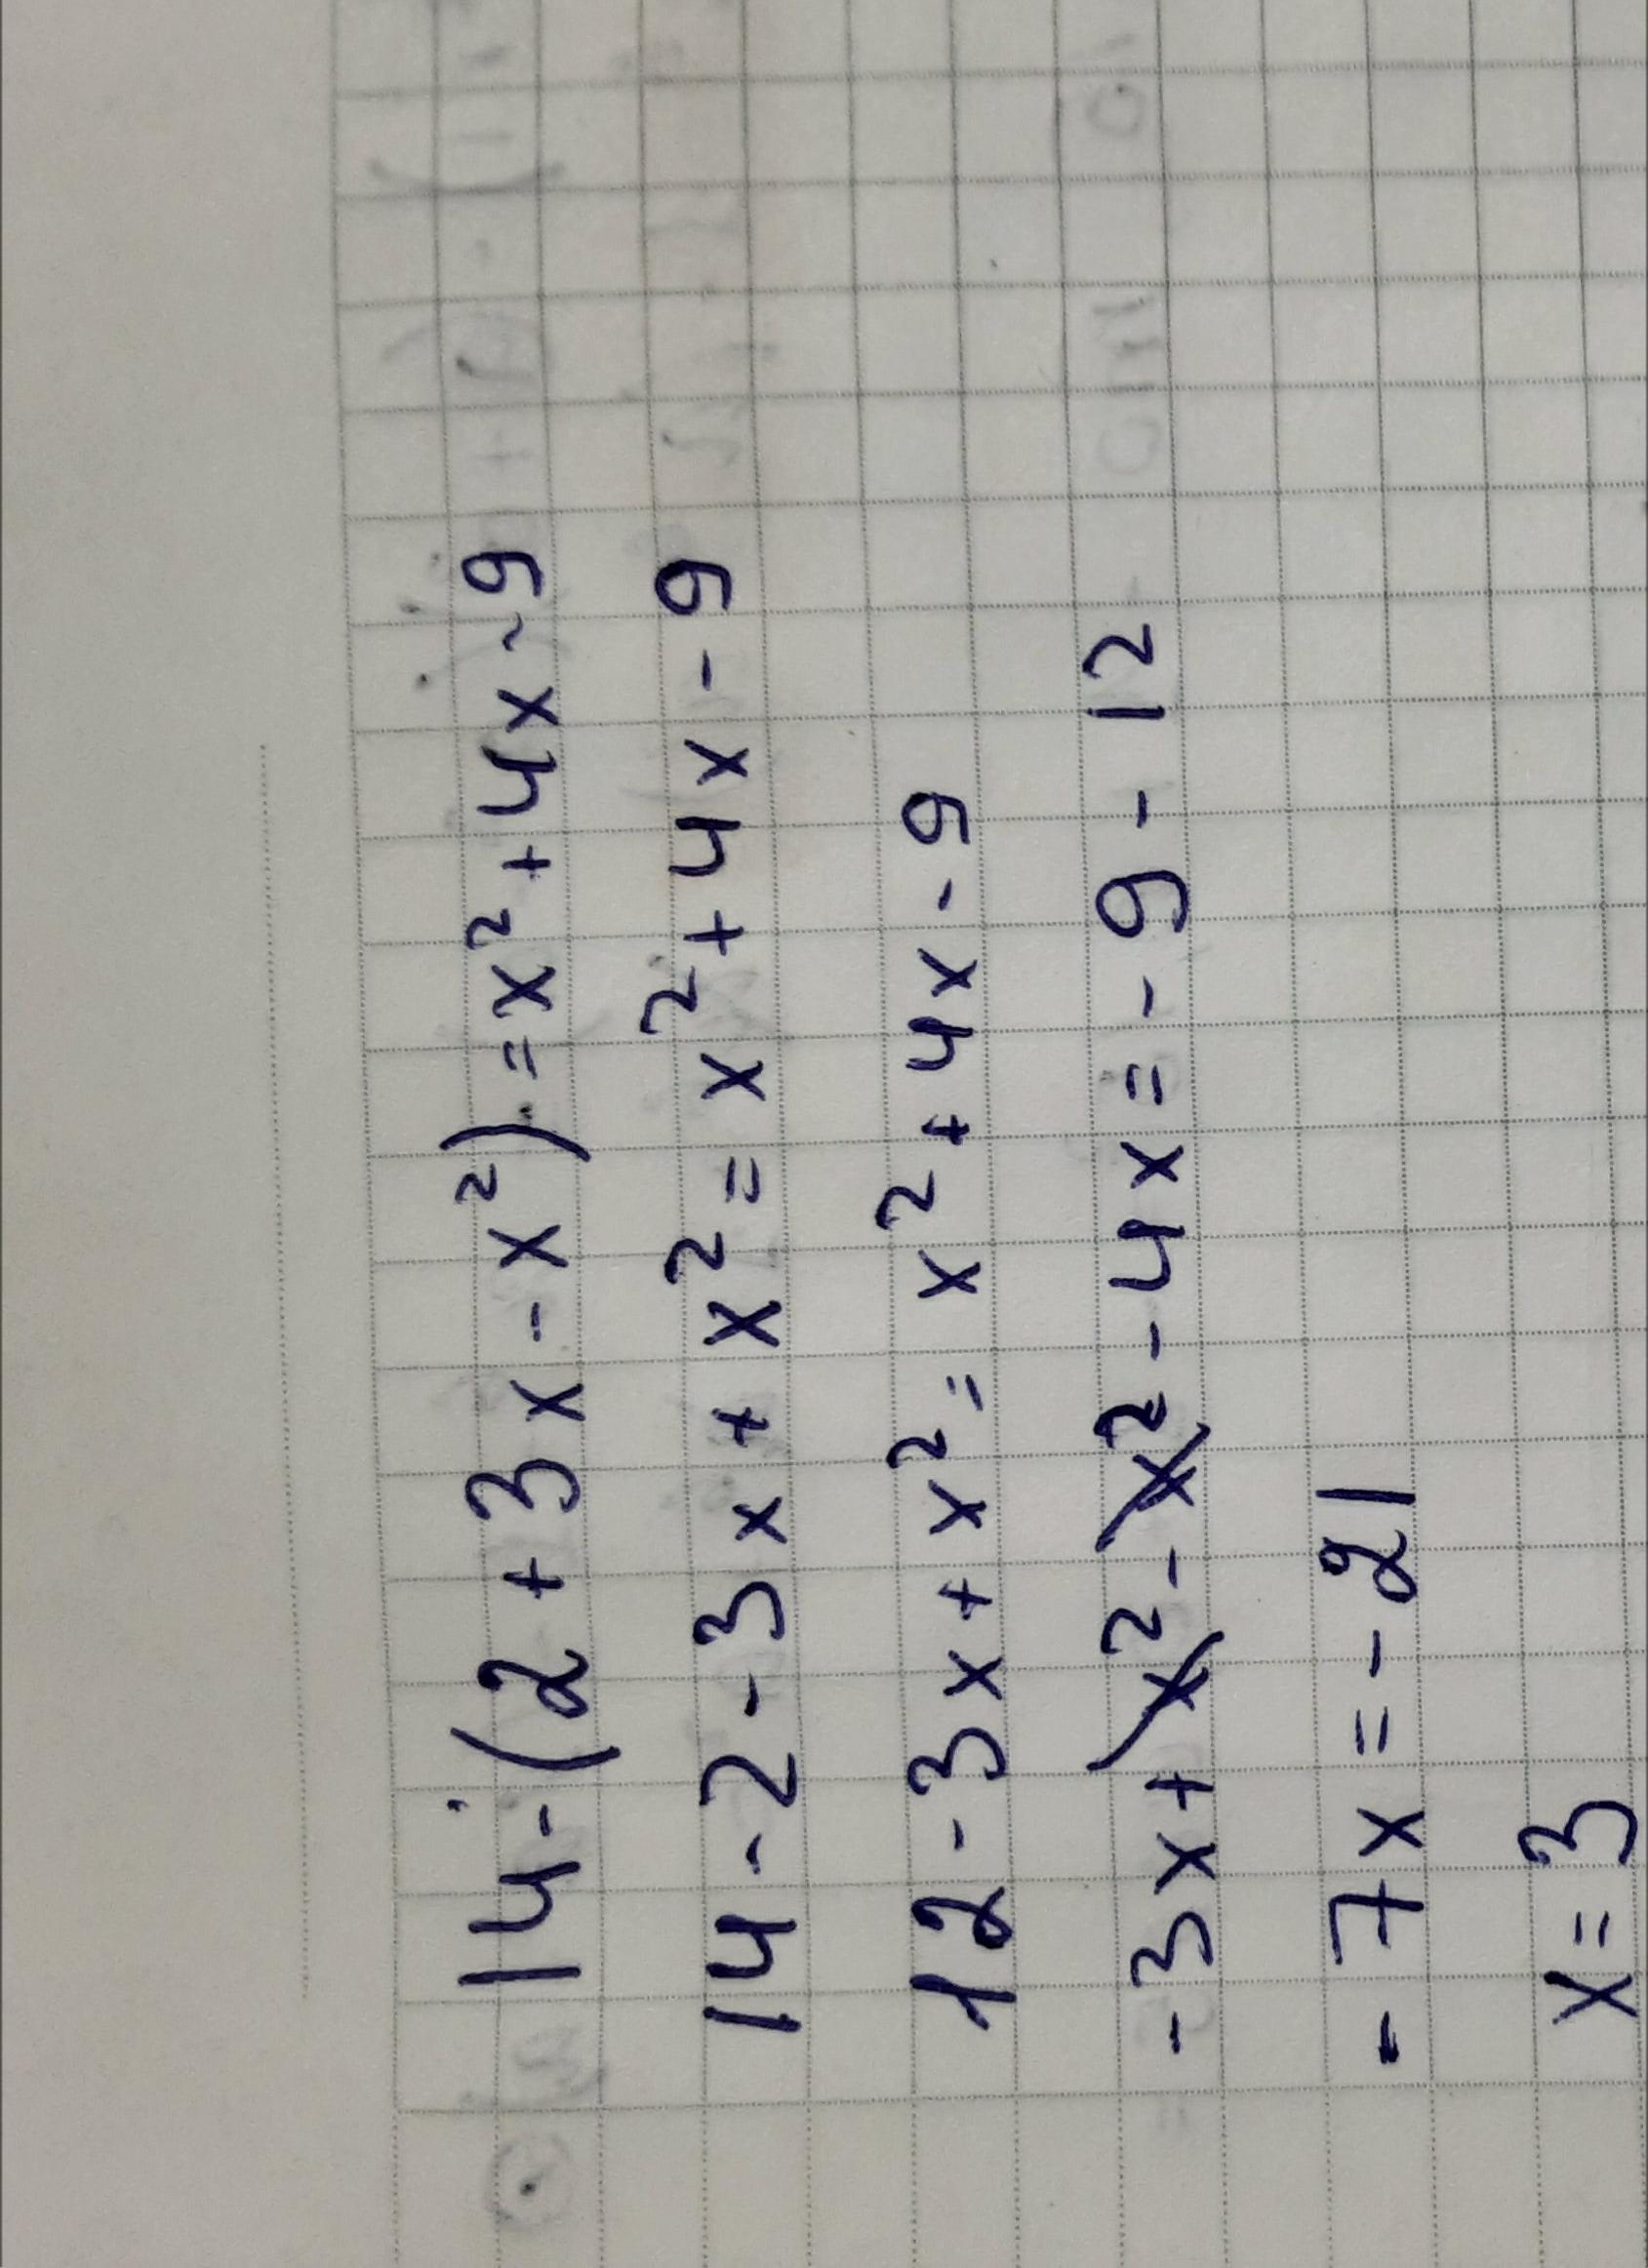 14-(2+3x-x²)=x²+4x-9
14-2-3x+x²=x²+4x-9
12-3x+x²=x²+4x-9
-3x+x²-x²-4x=-9-12
-7x=-21
x=3